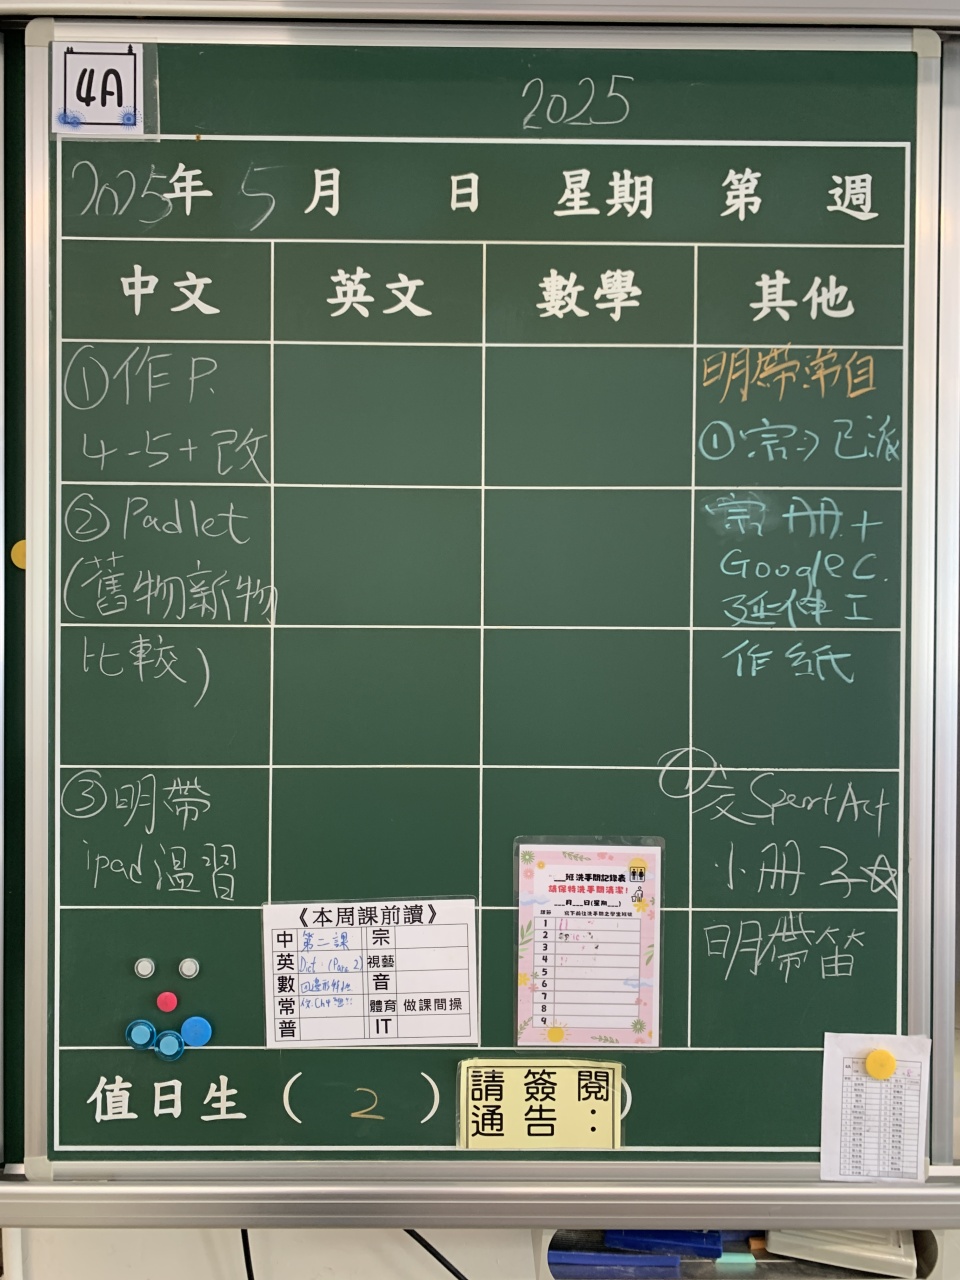 4A
2025
2025年 5月 日 星期 第 週
中文 英文 數學 其他
①作 P.
4-5+改
② Padlet
(舊物新物
比較)
③明帶
ipad溫習
明帶常自
①宗 已派
宗冊+
Google C.
延伸工
作紙
①交 Sport Act
小冊子☆
明帶笛
《本周課前讀》
中 第二課 宗
英 Dict. (Para. 2) 視藝
數 四邊形 音
常 體育 做課間操
普 IT
___班洗手間記錄表
請保持洗手間清潔!
___月___日(星期___)
1
2
3
4
5
6
7
8
9
值日生 ( 2 )
請簽閱
通告: